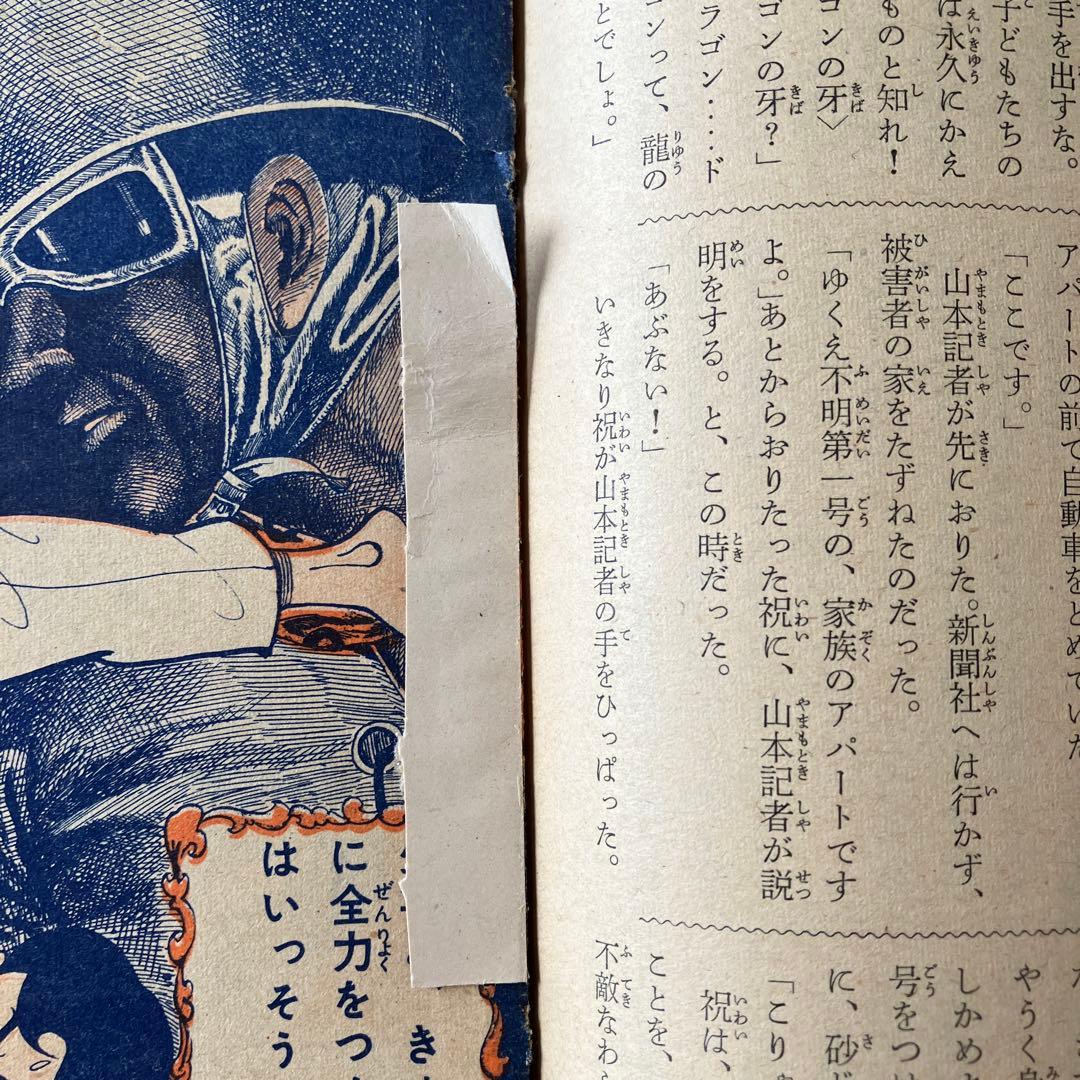 手を出すな。
子どもたちの
は永久にかえ
ものと知れ！
コンの牙〉
ゴンの牙？」
ラゴン‥‥ド
ンって、龍の
とでしょ。」
アパートの前で自動車をとめていた
「ここです。」
山本記者が先におりた。新聞社へは行かず、
被害者の家をたずねたのだった。
「ゆくえ不明第一号の、家族のアパートです
よ。」あとからおりたった祝に、山本記者が説
明をする。と、この時だった。
「あぶない！」
いきなり祝が山本記者の手をひっぱった。
やうく
しかめ
号をつけ
に、砂
「こり
祝は、
ことを、
不敵なわ
き
に全力をつ
はいっそう